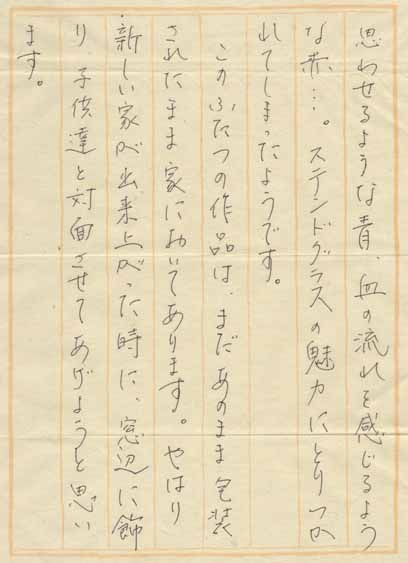 思わせるような青、血の流れを感じるよう
な赤…。ステンドグラスの魅力にとりつか
れてしまったようです。
このふたつの作品は、まだあのまま包装
されたまま家においてあります。やはり
新しい家が出来上がった時に、窓辺に飾
り、子供達と対面させてあげようと思い
ます。